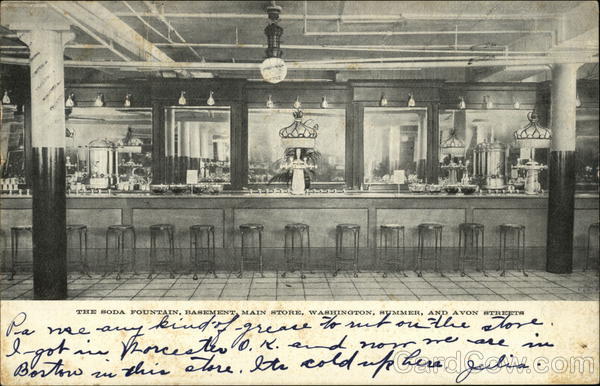 THE SODA FOUNTAIN, BASEMENT, MAIN STORE, WASHINGTON, SUMMER, AND AVON STREETS
Pa use any kind of grease to rub on the stove.
I got in Worcester O.K. and now we are in
Boston in this store. Its cold up here Julia.
CardCow.com